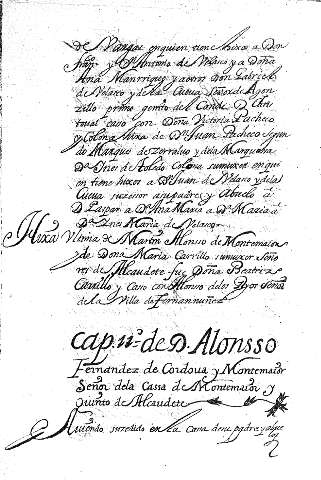 de Vargas enquien tiene hixos a Don
fran.co y D. Antonio de Velasco y a Doña
Ana Manrriquez y a otros Don Gabriel
de Velasco y de la Cueua Señor de
primo genito del Conde D. Chri
toual caso con Doña Victoria Pacheco
y Colona hixa de D. Juan Pacheco segun
do Marques de Zerraluo y de la Marquesa
D.a Ines de toledo Colona su muxer en qui
en tiene hixos a D. Juan de Velasco y de la
Cueua sucesor a su padre y Abuelo a
D. Gaspar a D.a Ana Maria a D.a Maria a
D.a Ines Maria de Velasco
Hixa Vltima de Martin Alonso de Montemaior
y de Doña Maria Carrillo su muxer seño
res de Alcaudete fue Doña Beatriz
Carrillo y Caso con Alonso de los Rios señor
de la Villa de fernannuñez
Cap. 11.o de D. Alonsso
Fernandez de Cordoua y Montemaior
Señor dela Cassa de Montemaior y
quinto de Alcaudete
Auiendo sucedido en la Cassa de su padre y